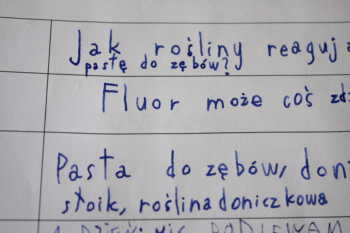 Jak rośliny reaguj
pastę do zębów?
Fluor może coś
Pasta do zębów, don
słoik, roślina doniczkowa